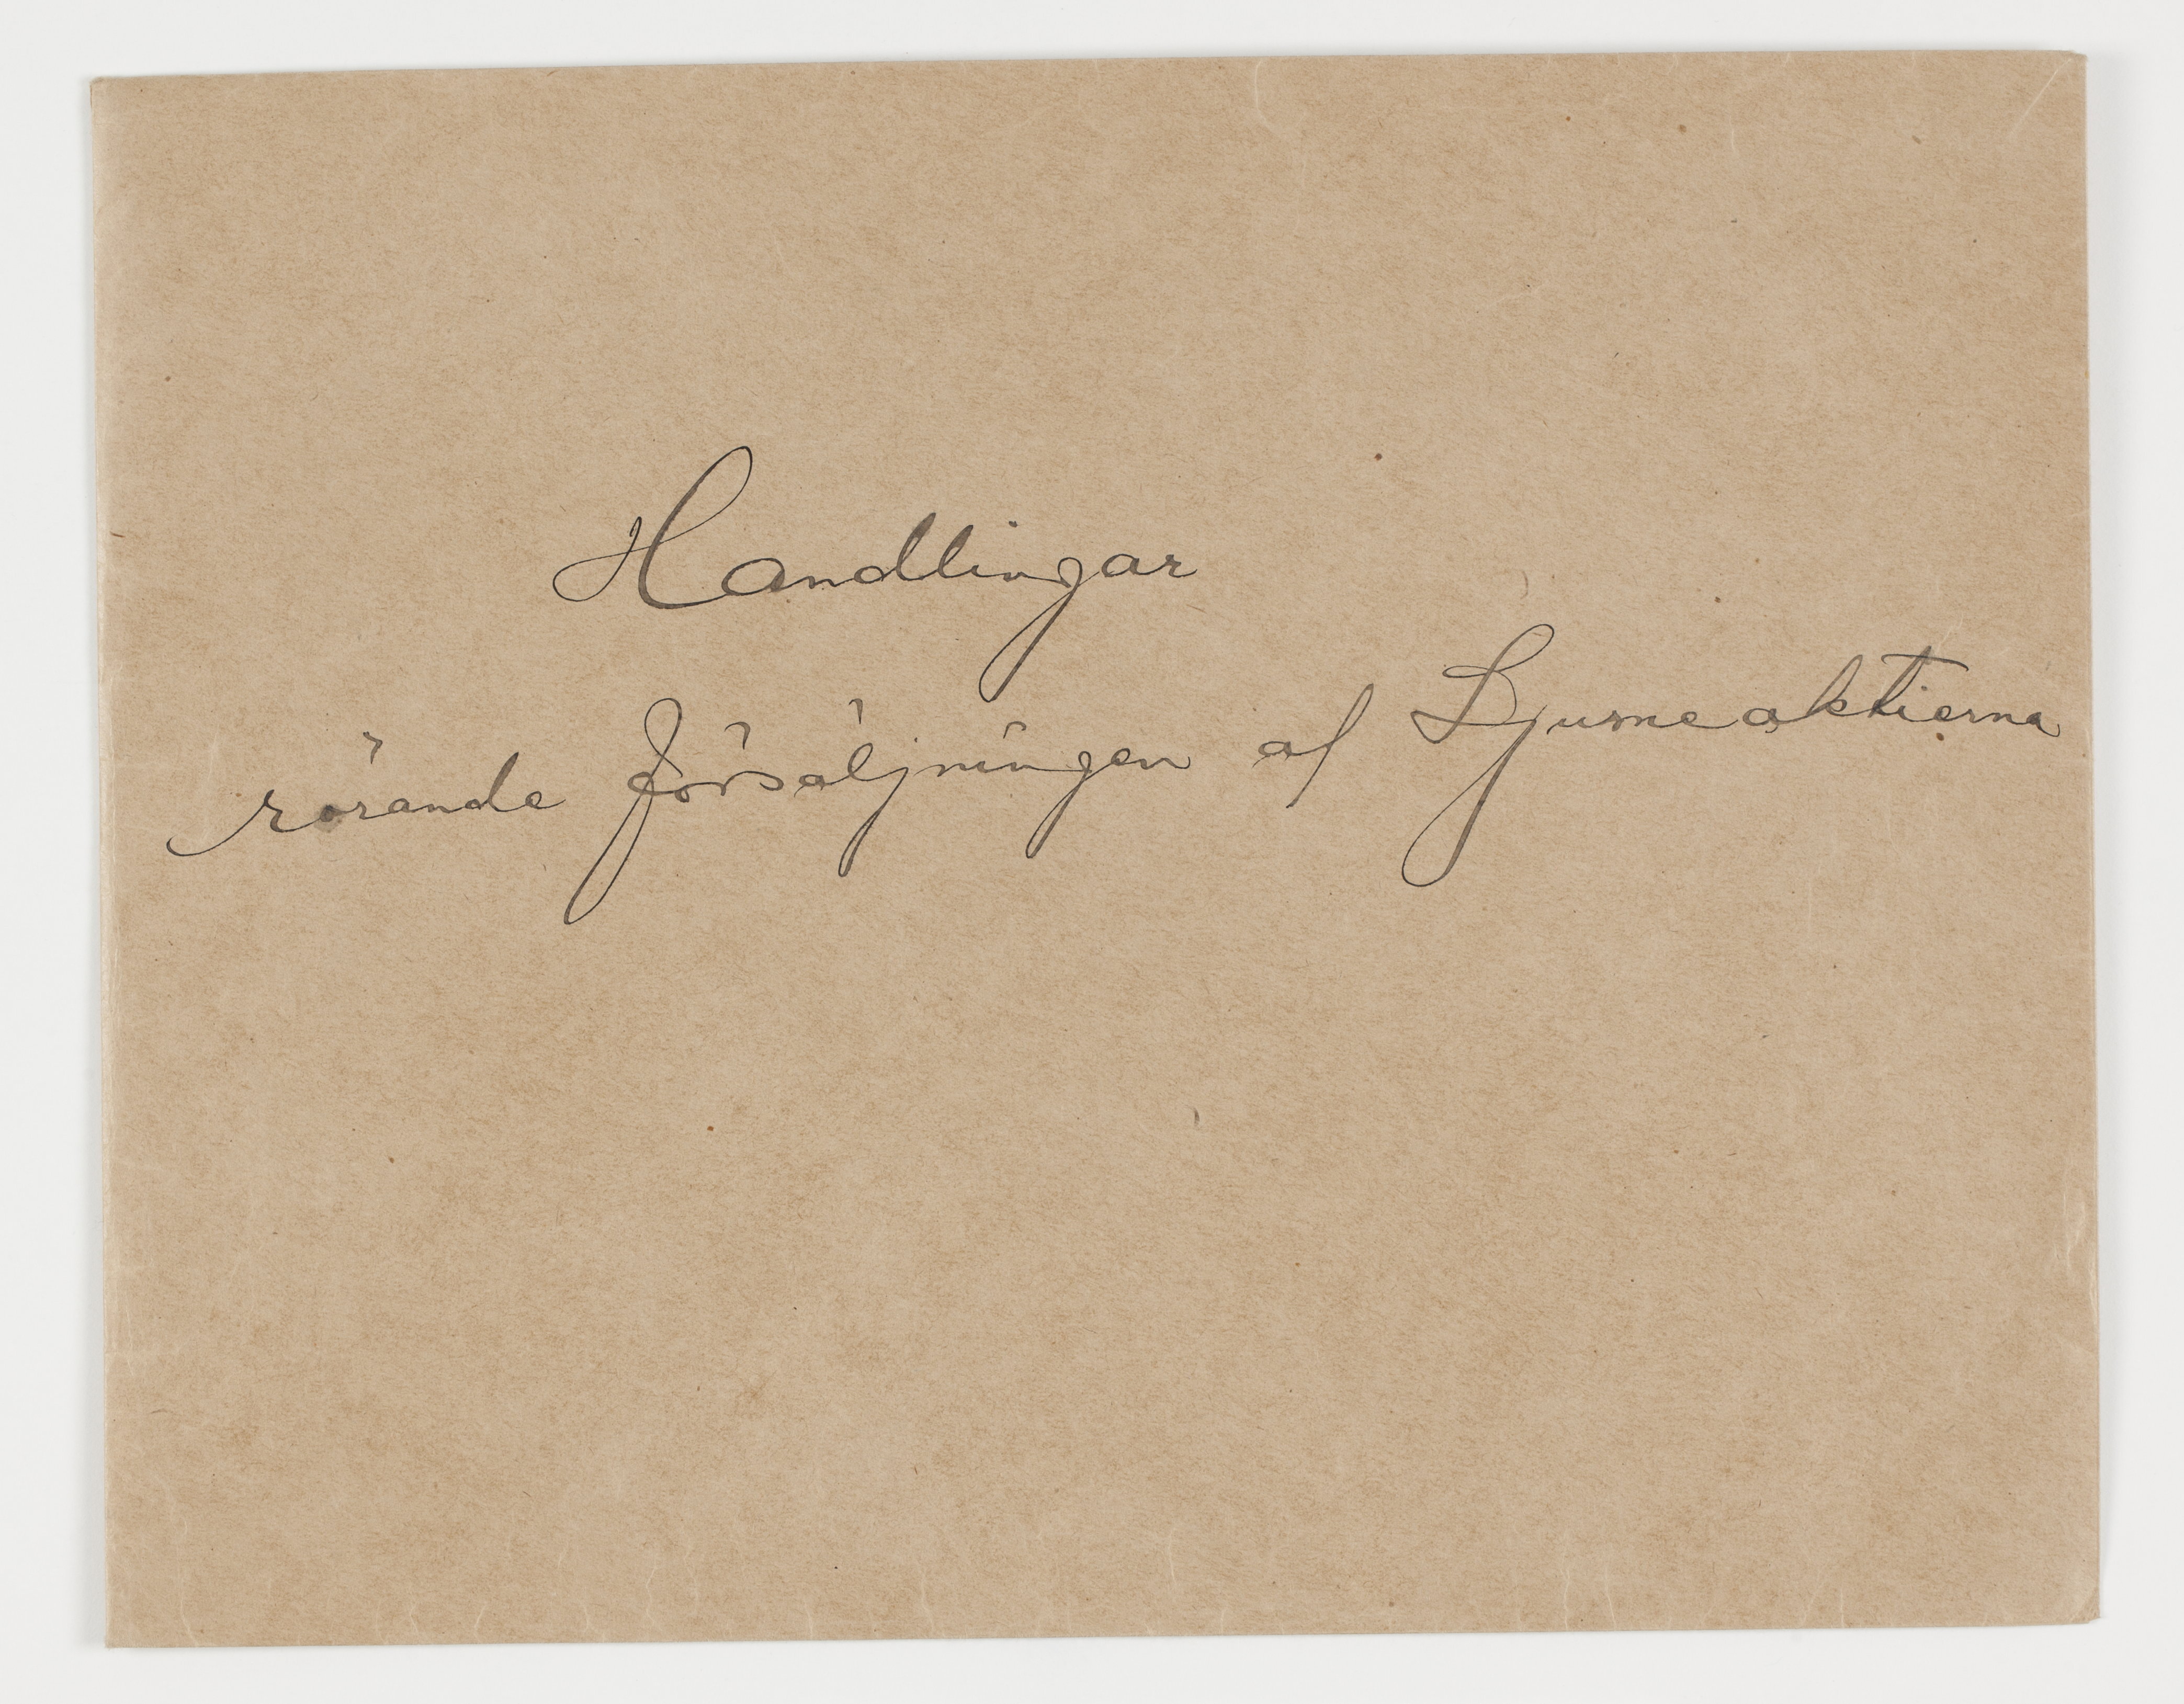 Handlingar
rörande försäljningen af Ljusneaktierna